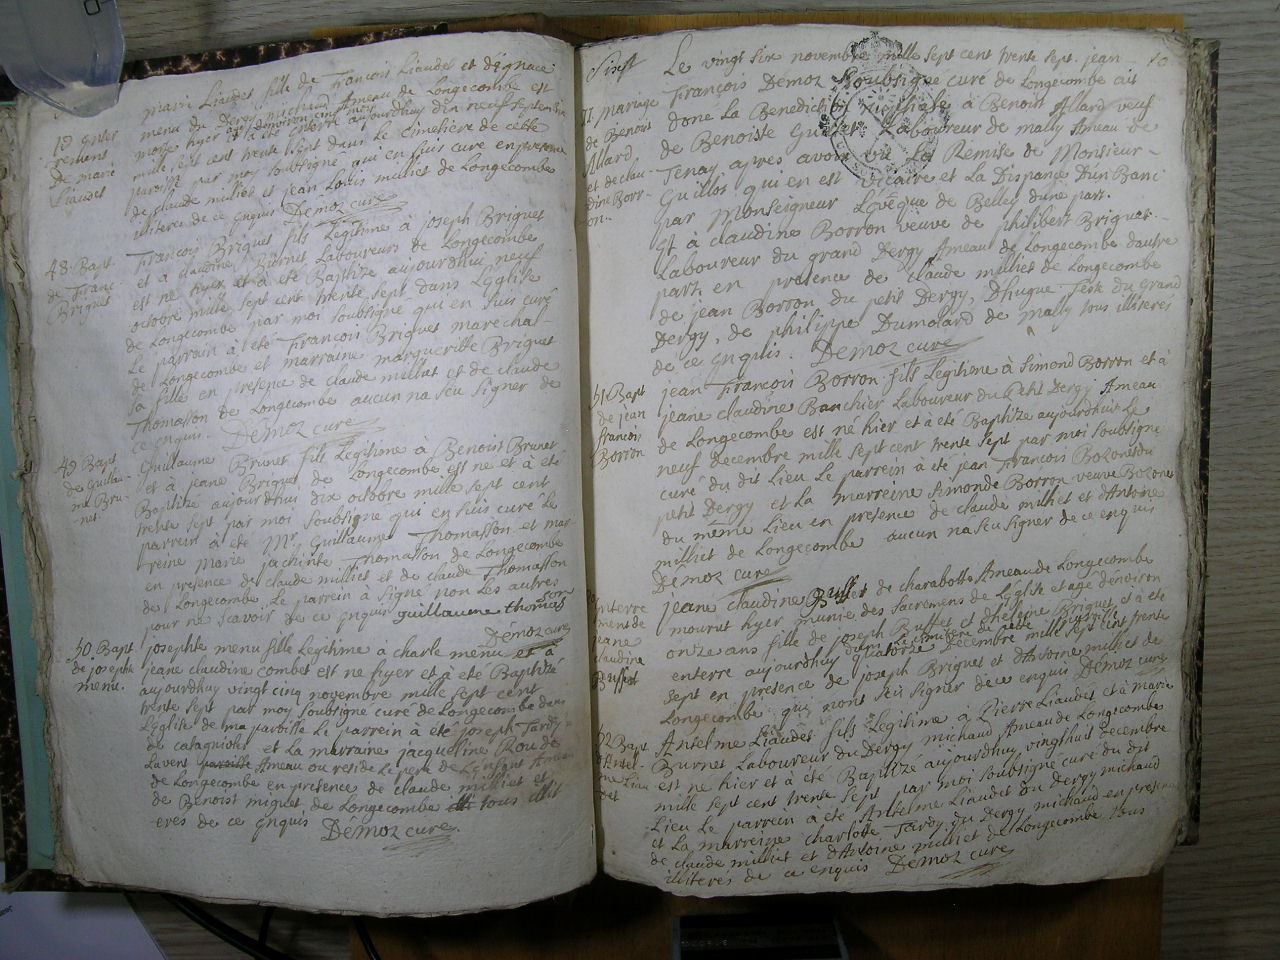 19 Enter
rement
De marie
Liaudet
marie Liaudet fille de François Liaudet et dégnace
menu du Dergy michaud Ameau de Longecombe est
morte hyer et a été enterré aujourdhuy dix neuf septembre
mille sept cent trente sept dans Le cimetiere de cette
paroisse par moy soubsigné qui en suis curé en presence
de claude milliet et jean Louis milliet de Longecombe
illiteres de ce enquis Démoz curé
48 Bapt
de Franc
Briguet
François Briguet fils Legitime à joseph Briguet
et a claudine Burnet Laboureurs de Longecombe
est né hyer et à été Baptize aujourdhui neuf
octobre mille sept cent trente sept dans L'Eglise
de Longecombe par moi soubsigné qui en suis curé
Le parrain à été François Briguet marechal
de Longecombe et marraine margueritte Briguet
sa fille en presence de claude milliet et de claude
Thomasson de Longecombe aucun na seu signer de
ce enquis. Démoz curé
49 Bapt
de Guillau-
me Bru-
net.
Guillaume Brunet fils Legitime à Benoist Brunet
et à jeane Briguet de Longecombe est ne et à été
Baptizé aujourdhui dix octobre mille sept cent
trente sept par moi soubsigné qui en suis curé Le
parrein à été Mr. Guillaume Thomasson et mar-
reine marie jachinte Thomasson de Longecombe
en presence de claude milliet et de claude Thomasson
de Longecombe Le parrein à signé non Les autres
pour ne scavoir de ce enquis guillaume thomasson
Démoz curé
50 Bapt
de josephte
menu.
josephte menu fille Legitime à charle menu et à
jeane claudine combet est ne hyer et à été Baptizé
aujourdhuy vingt cinq novembre mille sept cent
trente sept par moy soubsigné curé de Longecombe dans
Leglise de ma paroisse Le parrein à été joseph Tardy
de catagniole et La marraine jacqueline Rou de
Lavert paroisse Ameau ou reside Le pere de Lenfant Ameau
de Longecombe en presence de claude milliet et
de Benoist miguet de Longecombe tous illit
eres de ce enquis Démoz curé
10
II mariage
de Benois
Allard
et de clau-
dine Borr-
on.
Le vingt six novembre mille sept cent trente sept. jean
François Démoz soubsigné curé de Longecombe ait
done La Benediction nuptiale à Benoist Allard veuf
de Benoiste Laboureur de mally Ameau de
Tenay apres avoir vu La Remise de Monsieur
Guillot qui en est vicaire et La Dispance Dun Banc
par Monseigneur Leveque de Belley dune part.
Et à claudine Borron veuve de philibert Briguet
Laboureur du grand Dergy Ameau de Longecombe dautre
part. en presence de claude milliet de Longecombe
de jean Borron du petit Dergy, Dhugue du grand
Dergy, de philippe Dumolard de mally tous illiteres
de ce Enquis. Démoz curé
51 Bapt
de jean
François
Borron
jean François Borron fils Legitime à Simond Borron et à
jeane claudine Banchier Laboureur du Petit Dergy Ameau
de Longecombe est né hier et à été Baptize aujourdhui Le
neuf decembre mille sept cent trente sept par moi soubsigné
curé du dit Lieu Le parrein à été jean François Bozonet du
petit Dergy et La marreine Simonde Borron veuve Bozonet
du même Lieu en presence de claude milliet et d'Antoine
milliet de Longecombe aucun na seu signer de ce enquis
Démoz curé
Enterre
ment de
jeane
claudine
Buffet
jeane claudine Buffet de charabotte Ameau de Longecombe
mourut hyer munie des sacremens de L'église et age denviron
onze ans fille de joseph Buffet et Briguet et à été
enterré aujourdhuy dans Le cimetiere de ma paroisse
quatorze Decembre mille sept cent trente
sept en presence de joseph Briguet et d'Antoine milliet de
Longecombe qui n'ont seu signer de ce enquis Démoz curé
52 Bapt.
d'Antel-
me Liau
det
Anselme Liaudet fils Legitime à Pierre Liaudet et à marie
Burnet Laboureur du Dergy michaud Ameau de Longecombe
est ne hier et à été Baptizé aujourdhuy vingt huit decembre
mille sept cent trente sept par moi soubsigné curé du dit
Lieu Le parrein à été Anselme Liaudet du Dergy michaud
et La marreine charlotte Tardy du Dergy michaud en presence
de claude milliet et d'Antoine milliet de Longecombe tous
illiteres de ce enquis Démoz curé